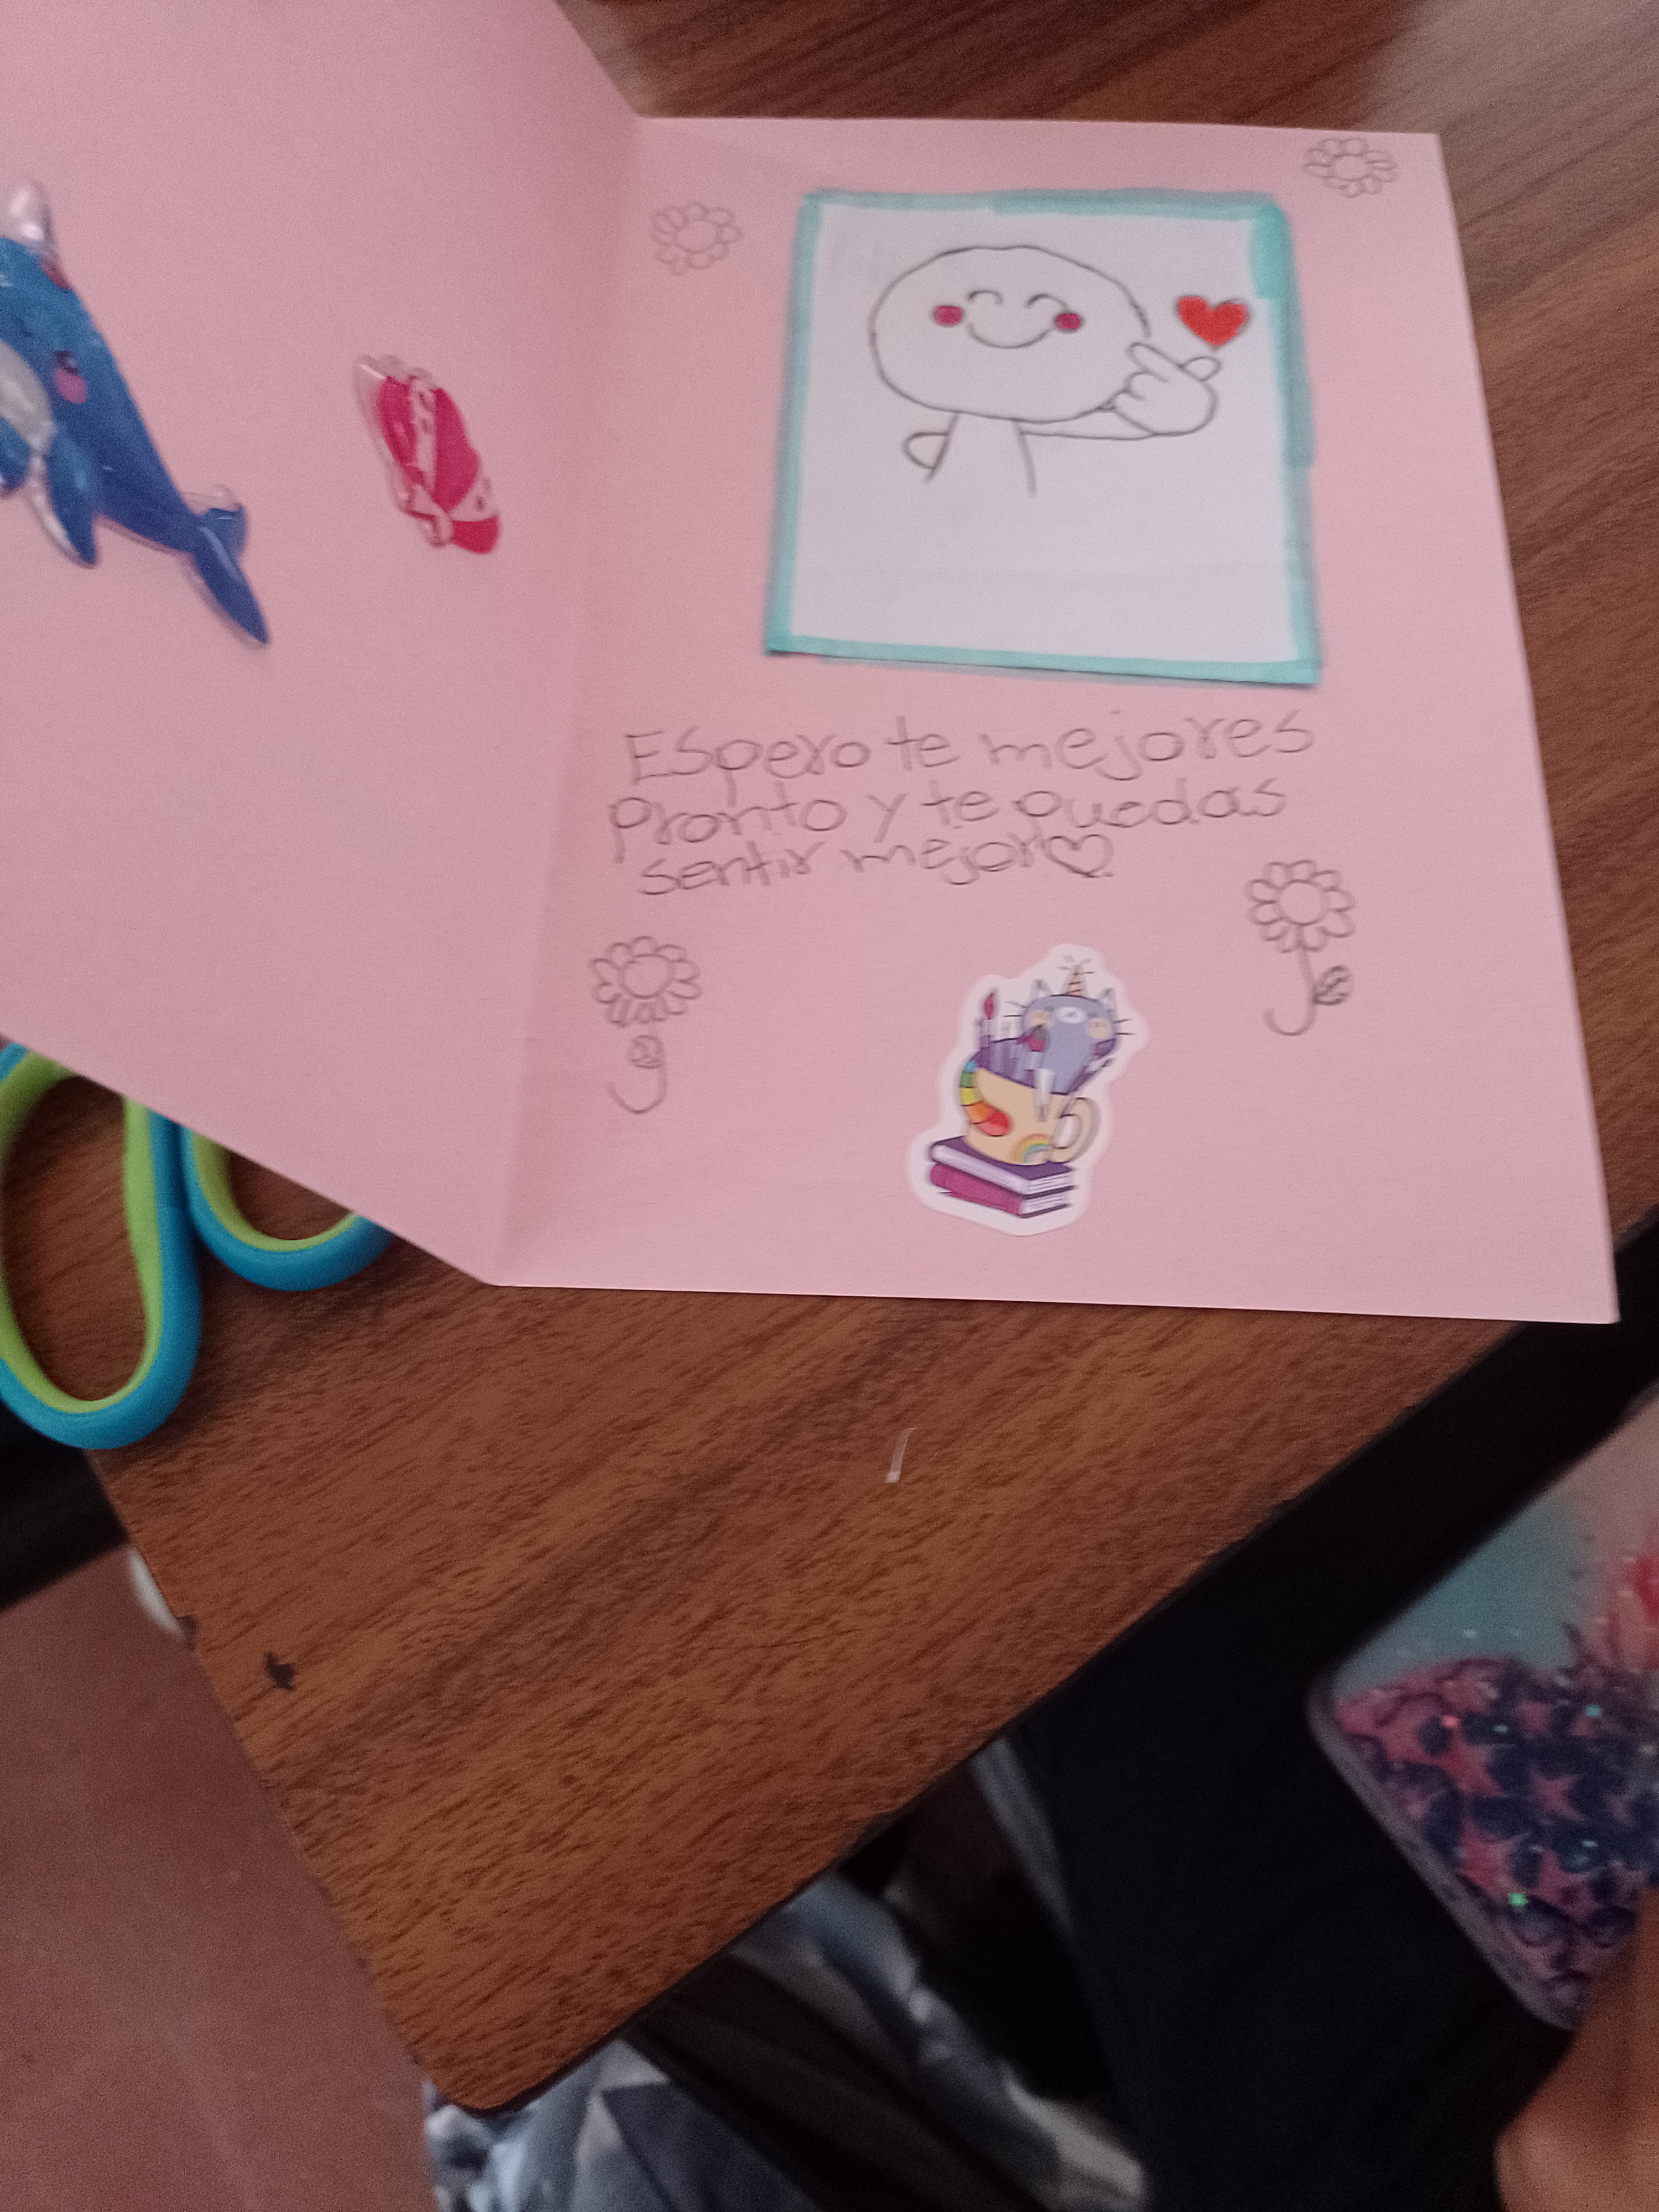 Espero te mejores
pronto y te puedas
sentir mejor♡